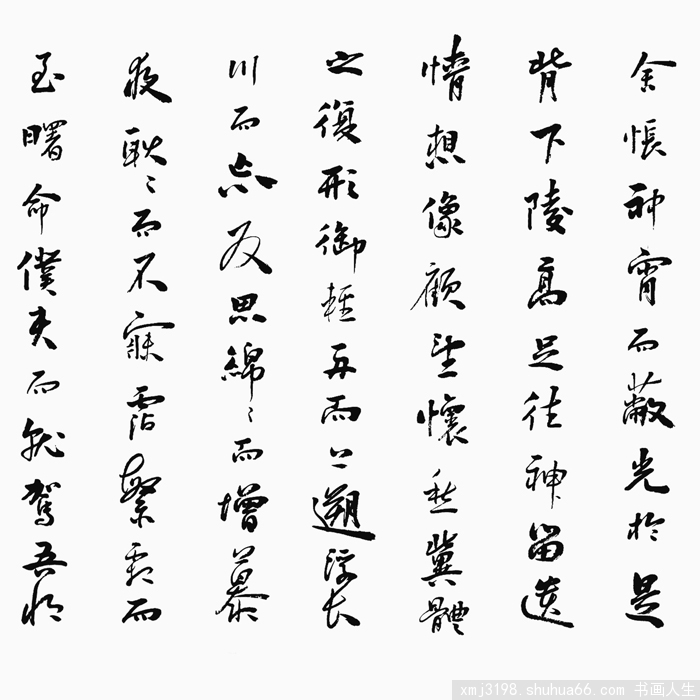 舍悵神宵而蔽光於是
背下陵高足往神留遺
情想像顧望懷愁冀體
之復形御輕舟而上遡浮長
川而忘反思綿々而增慕
夜耿々而不寐霑繁霜而
至曙命僕夫而就駕吾將
xmj3198.shuhua66.com 书画人生